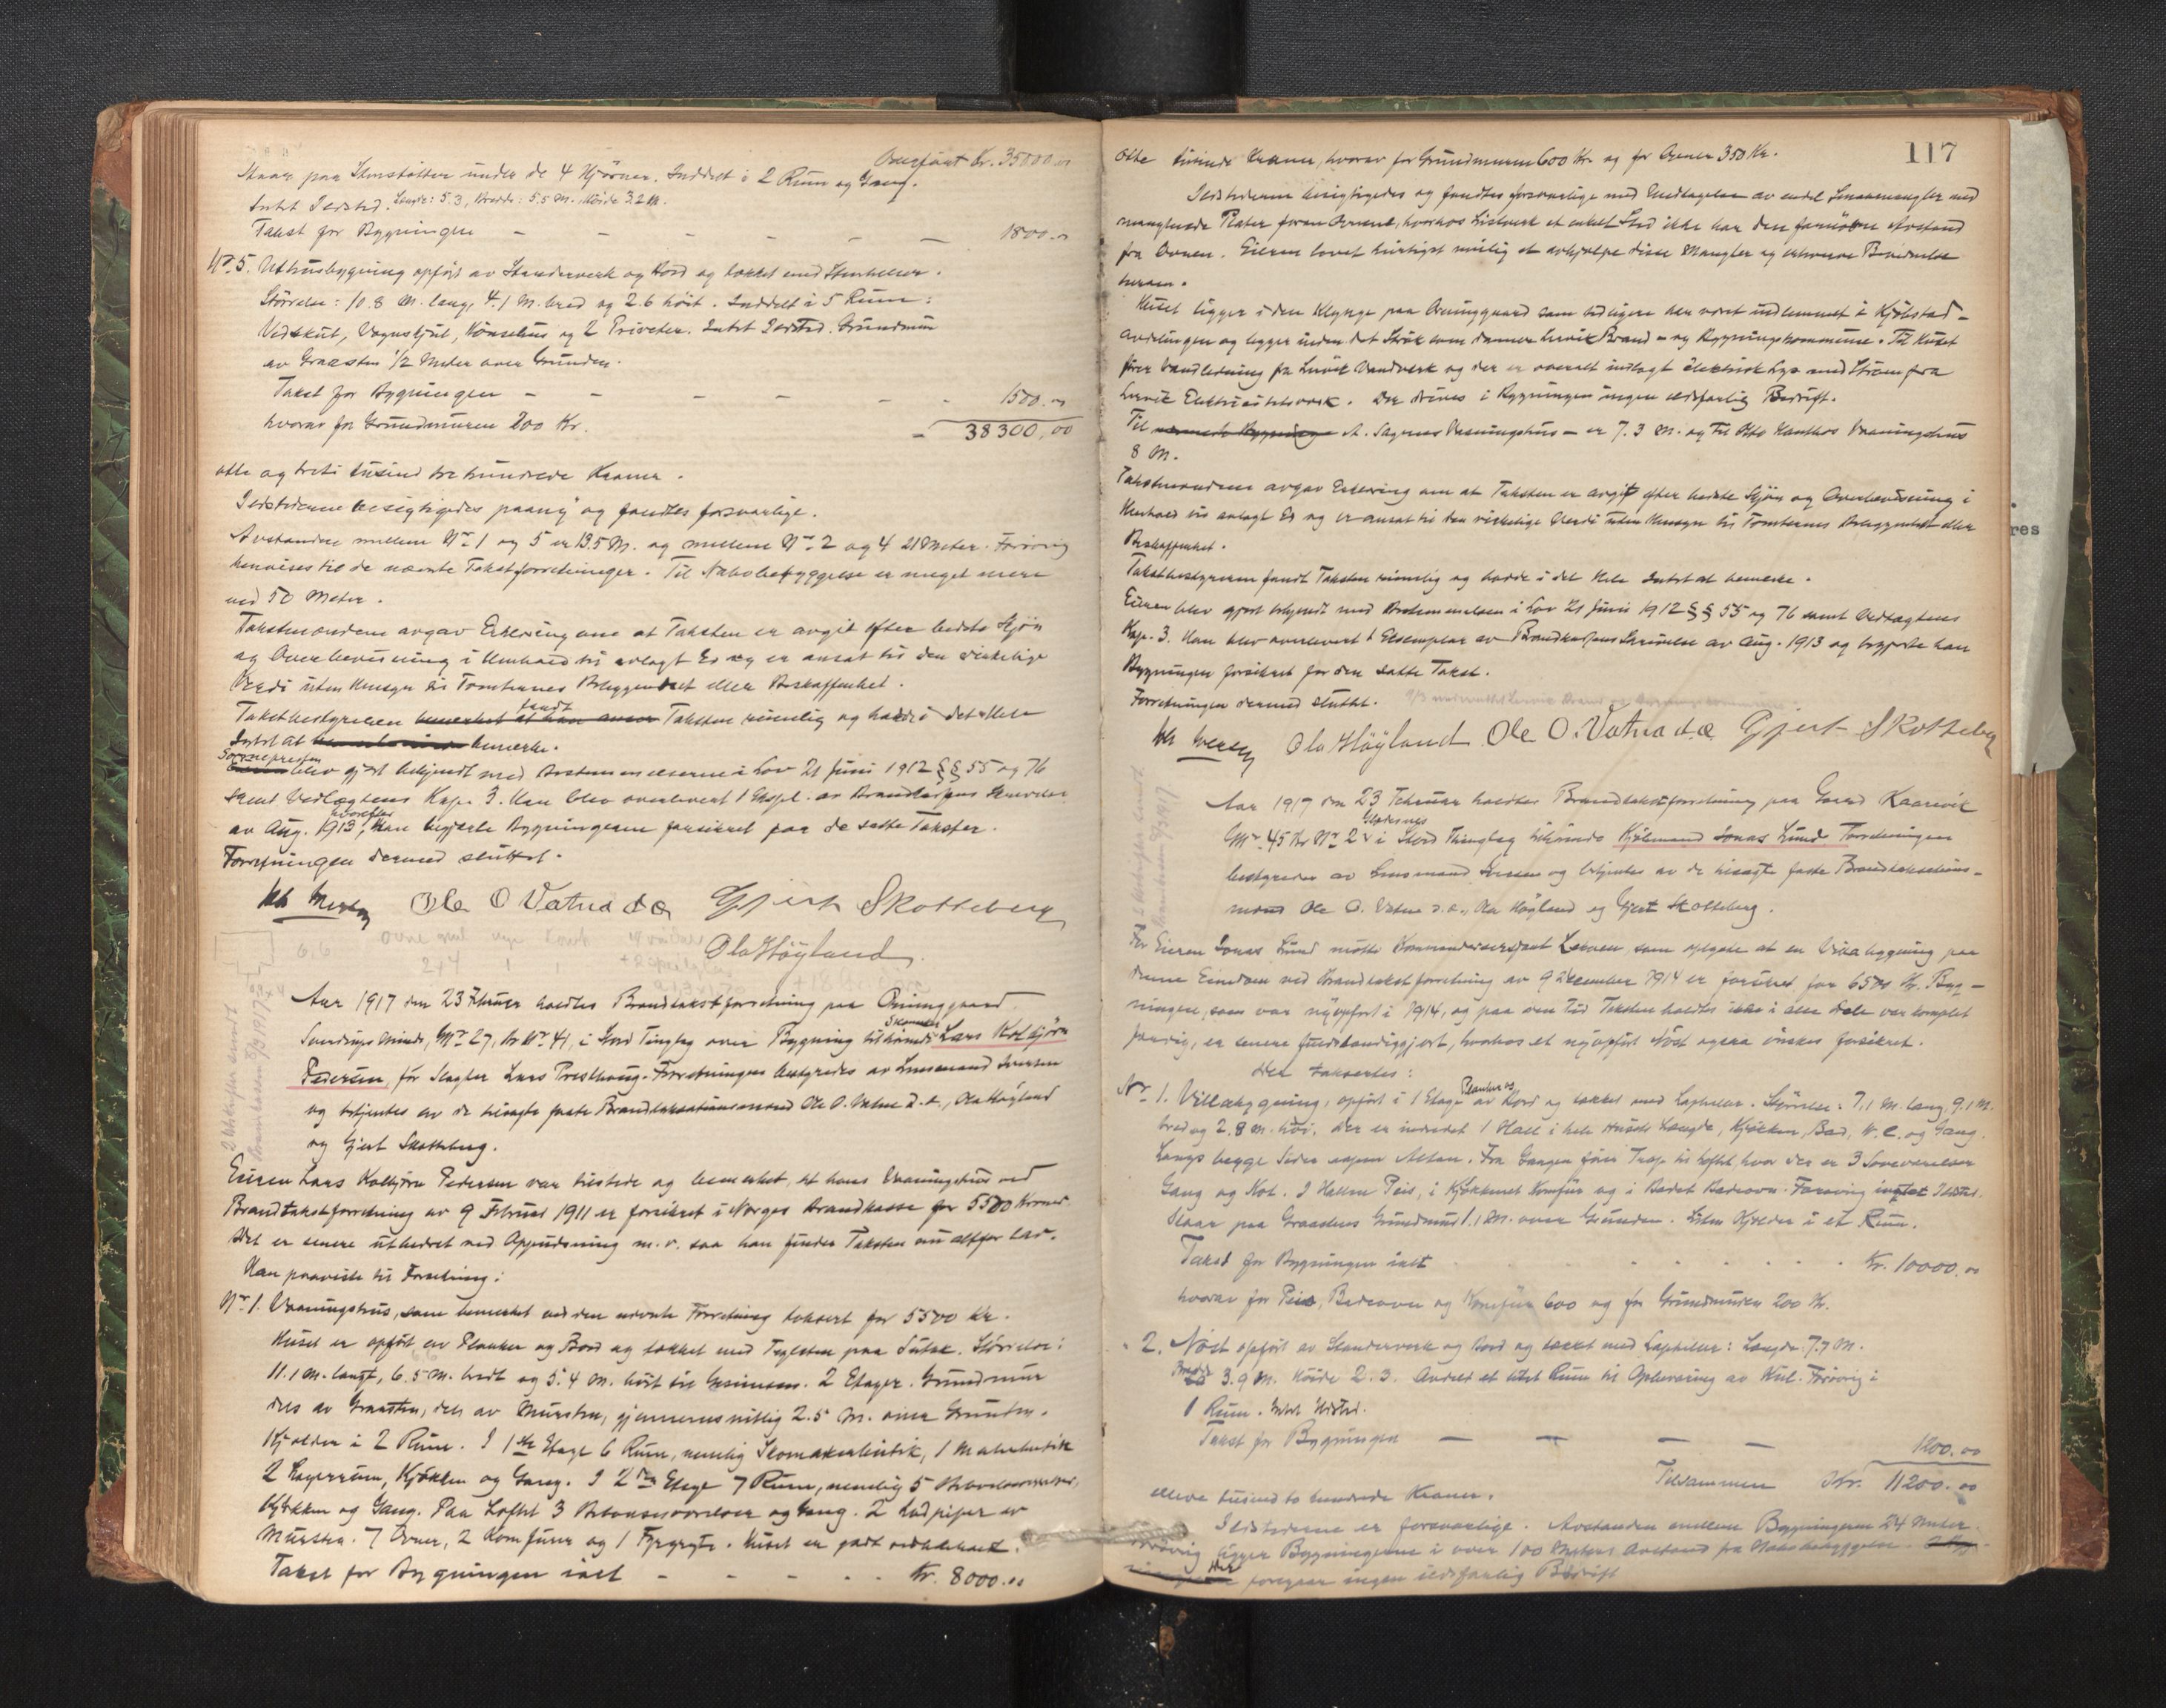 Overført Kr. 35000.00
Staar paa Stenstøtter under de 4 Hjørner. Inddelt i 2 Rum og Gang.
Intet Ildsted. Længde: 5.3, Bredde: 5.5 M. Høide 3.2 M.
Takst for Bygningen - - - - - - 1800.00
No 5. Uthusbygning opført av Stenderverk og Bord og tækket med Stenheller.
Størrelse: 10.8 M. lang, 4.1 M. bred og 2.6 høit. Inddelt i 5 Rum:
Vedskut, Vognskjul, Hønsehus og 2 Priveter. Intet Ildsted. Grundmur
av Graasten 1/2 Meter over Grunden.
Takst for Bygningen - - - - - - 1500.00
hvorav for Grundmuren 200 Kr. - 38300,00
otte og treti tusind tre hundrede Kroner.
Ildstederne besigtigedes paany og fandtes forsvarlige.
Avstanden mellem No 1 og 5 er 13.5 M. og mellem No 2 og 4 21 Meter. Forøvrig
henvises til de nævnte Takstforretninger. Til Nabobebyggelse er meget mere
end 50 Meter.
Takstmændene avgav Erklæring om at Taksten er avgit efter bedste Skjøn
og Overbevisning i Henhold til avlagt Ed og er ansat til den virkelige
Værdi uten Hensyn til Tomternes Beliggenhet eller Beskaffenhet.
Takstbestyreren fandt Taksten rimelig og hadde i det Hele
Intet at bemerke.
Sognepresten blev gjort bekjendt med Bestemmelserne i Lov 21 Juni 1912 §§ 55 og 76
samt Vedtægtens Kap. 3. Han blev overlevert 1 Expl. av Brandkassens Skrivelse
av Aug. 1913, hvorefter Han begjærte Bygningerne forsikret paa de satte Takster.
Forretningen dermed sluttet.
Ole O Vatna d.æ. Gjert Skotteberg
Ola Høyland
Aar 1917 den 23 Februar holdtes Brandtakstforretning paa Oninggaard
Sverdrups Minde, Gno 27, Br No 41, i Stord Tinglag over Bygning tilhørende Skomaker Lars Kolbjørn
Pedersen, før Slagter Lars Presthaug. Forretningen bestyredes av Lensmand Iversen
og betjentes av de tilsagte faste Brandtakstationsmænd Ole O. Vatna d.æ., Ola Høyland
og Gjert Skotteberg.
Eieren Lars Kolbjørn Pedersen var tilstede og bemerket, at hans Vaaningshus ved
Brandtakstforretning av 9 Februar 1911 er forsikret i Norges Brandkasse for 5500 Kroner.
Det er senere utbedret ved Oppudsning m.v. saa han finder Taksten nu altfor lav.
Han paaviste til Forretning:
No 1. Vaaningshus, som bemerket ved den nævnte Forretning taksert for 5500 Kr.
Huset er opført av Planker og Bord og tækket med Teglsten paa Sutak. Størrelse:
11.1 M. langt, 6.5 M. bredt og 5.4 M. høit til Gesimsen. 2 Etager. Grundmur
dels av Graasten, dels av Mursten, gjennemsnitlig 2.5 M. over Grunden.
Kjælder i 2 Rum. I 1ste Etage 6 Rum, nemlig Skomakerbutik, 1 Malerbutik
2 Lagerrum, Kjøkken og Gang. I 2den Etage 7 Rum, nemlig 5 Beboelsesværelser,
Kjøkken og Gang. Paa Loftet 3 Beboelsesværelser og Gang. 2 Ludpiper av
Mursten. 7 Ovner, 2 Komfurer og 1 Frygryte. Huset er godt vedlikeholdt.
Takst for Bygningen ialt - - - - - Kr. 8000.00
117
Otte tusinde Kroner, hvorav for Grundmuren 600 Kr. og for Ovner 350 Kr.
Ildstederne besigtigedes og fandtes forsvarlige med Undtagelse av endel Smaamangler med
manglende Plater foran Ovnene, hvorhos Listverk et enkelt Sted ikke har den fornødne Avstand
fra Ovnen. Eieren lovet hurtigst mulig at avhjælpe disse Mangler og erhverve Bevidnelse
herom.
Huset ligger i den Klynge paa Oninggaard som tidligere har været indlemmet i Kjøbstad-
avdelingen og ligger inden det Strøk som danner Lervik Brand- og Bygningskommune. Til Huset
fører Vandledning fra Lervik Vandverk og der er overalt indlagt elektrisk Lys med Strøm fra
Lervik Elektricitetsverk. Der drives i Bygningen ingen ildsfarlig Bedrift.
Til A. Sagenes Vaaningshus er 7.3 M. og til Otto Vaaningshus
8 M.
Takstmændene avgav Erklæring om at Taksten er avgit efter bedste Skjøn og Overbevisning i
Henhold til avlagt Ed og er ansat til den virkelige Værdi uten Hensyn til Tomternes Beliggenhet eller
Beskaffenhet.
Takstbestyreren fandt Taksten rimelig og hadde i det Hele Intet at bemerke.
Eieren blev gjort bekjendt med Bestemmelsen i Lov 21 Juni 1912 §§ 55 og 76 samt Vedtægtens
Kap. 3. Han blev overlevert 1 Eksemplar av Brandkassens Skrivelse av Aug. 1913 og begjærte han
Bygningen forsikret for den satte Takst.
Forretningen dermed sluttet.
Ola Høyland Ole O. Vatna d.æ. Gjert Skotteberg
Aar 1917 den 23 Februar holdtes Brandtakstforretning paa Gaard Kaarevik
Gno 45 Br No 2 i Stord Thinglag tilhørende Kjøbmand Jonas Lund. Forretningen
bestyredes av Lensmand Iversen og betjentes av de tilsagte faste Brandtakstations-
mænd Ole O. Vatna d.æ., Ola Høyland og Gjert Skotteberg.
For Eieren Jonas Lund møtte som oplyste at en Villabygning paa
denne Eiendom ved Brandtakstforretning av 9 December 1914 er forsikret for 6500 Kr. Byg-
ningen, som var nyopført i 1914, og paa den Tid Taksten holdtes ikke i alle Dele var komplet
færdig, er senere fuldstændiggjort, hvorhos et nyopført Nøst ogsaa ønskes forsikret.
Der takseredes:
No 1. Villabygning, opført i 1 Etage av Planker og Bord og tækket med Lapheller. Størrelse: 7.1 M. lang, 9.1 M.
bred og 2.8 M. høi. Der er indredet 1 Hall i hele Husets Længde, Kjøkken, Bad, W.C. og Gang.
Langs begge Sider aapen Altan. Fra Gangen fører Trap til Loftet, hvor der er 3 Soveværelser
Gang og Kot. I Hallen Peis, i Kjøkkenet Komfur og i Badet Badeovn. Forøvrig intet Ildsted.
Staar paa Graastens Grundmur 1.1 M. over Grunden. Liten Kjælder i et Rum.
Takst for Bygningen ialt . . . . . . Kr. 10000.00
hvorav for Peis, Badeovn og Komfur 600 og for Grundmuren 200 Kr.
" 2. Nøst opført av Stenderverk og Bord og tækket med Lapheller: Længde: 7.7 M.
Bredde 3.9 M. Høide 2.3. Avdelt et litet Rum til Opbevaring av Kul. Forøvrig i
1 Rum. Intet Ildsted.
Takst for Bygningen - - - - 1200.00
Tilsammen Kr. 11200.00
elleve tusind to hundrede Kroner.
Ildstederne er forsvarlige. Avstanden mellem Bygningerne 24 Meter.
Forøvrig ligger Bygningerne i over 100 Meters Avstand fra Nabobebyggelse.
Her foregaar ingen ildsfarlig Bedrift